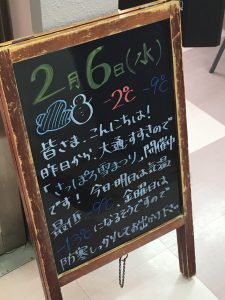 2月6日(水)
-2℃ -9℃
皆さま、こんにちは!
昨日から、大通、すすきので
「さっぽろ雪まつり」開催中
です! 今日・明日は気温
最低 -9℃、金曜日は
-13℃になるそうですので
防寒しっかりしてお出かけ下さい